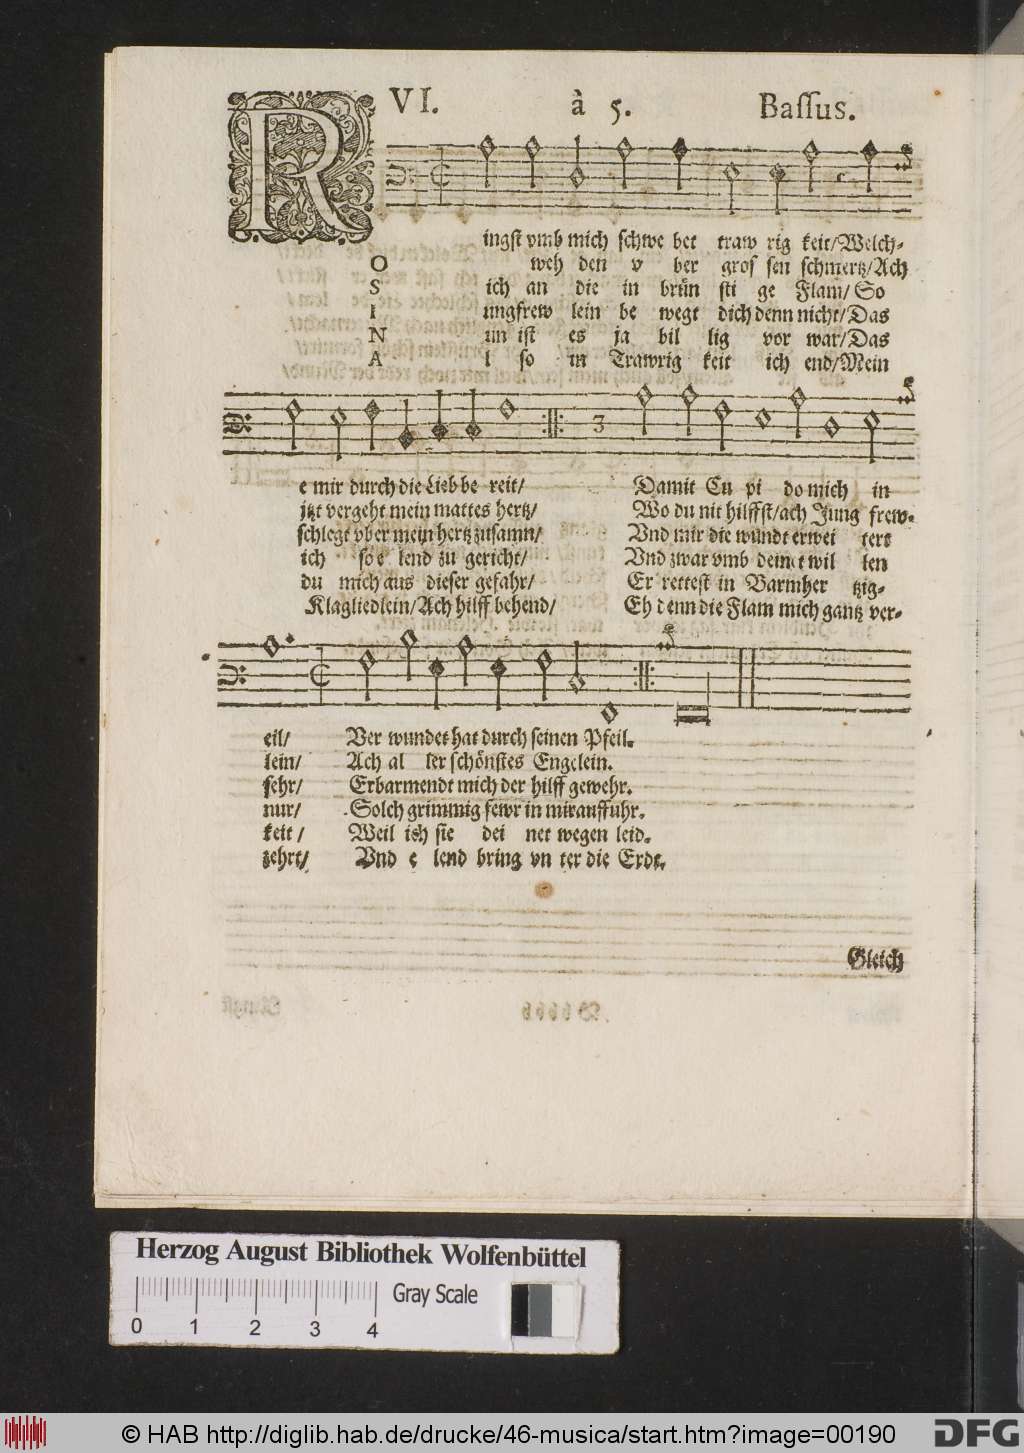 VI. à 5. Bassus.
R ingst vmb mich schwe bet traw rig keit/Welch-
O weh den v ber gros sen schmertz/Ach
S ich an die in brün sti ge Flam/ So
I ungfrew lein be wegt dich denn nicht/Das
N un ist es ja bil lig vor war/Das
A l so in Trawrig keit ich end/Mein
e mir durch die Lieb be reit/ Damit Cu pi do mich in
jtzt vergeht mein mattes hertz/ Wo du nit hilffst/ach Jung frew-
schlegt vber mein hertz zusamn/ Vnd mir die wundt erwei tert
ich so e lend zu gericht/ Vnd zwar vmb deinet wil len
du mich aus dieser gefahr/ Er rettest in Barmher tzig-
Klagliedlein/Ach hilff behend/ Eh denn die Flam mich gantz ver-
eil/ Ver wundet hat durch seinen Pfeil.
lein/ Ach al ler schönstes Engelein.
sehr/ Erbarmendt mich der hilff gewehr.
nur/ Solch grimmig fewr in mir auffuhr.
keit/ Weil ich sie dei net wegen leid.
zehrt/ Vnd e lend bring vn ter die Erde.
Gleich
Herzog August Bibliothek Wolfenbüttel
Gray Scale
0 1 2 3 4
© HAB http://diglib.hab.de/drucke/46-musica/start.htm?image=00190 DFG